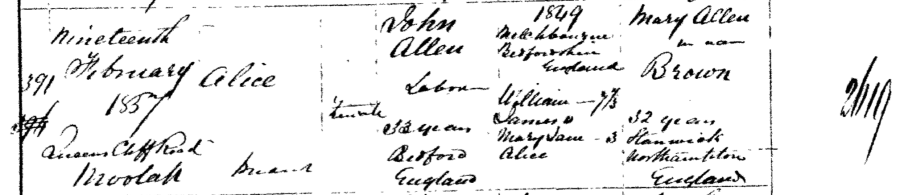 391
Nineteenth
February
1857
Queens Cliff Road
Moolap
Alice
Female
John
Allen
Labor
32 years
Bedford
England
1849
Melchbourne
Bedfordshire
England
William - 7½
James
Mary Jane - 3
Alice
Mary Allen
Brown
32 years
Stanwick
Northampton
England
2/19